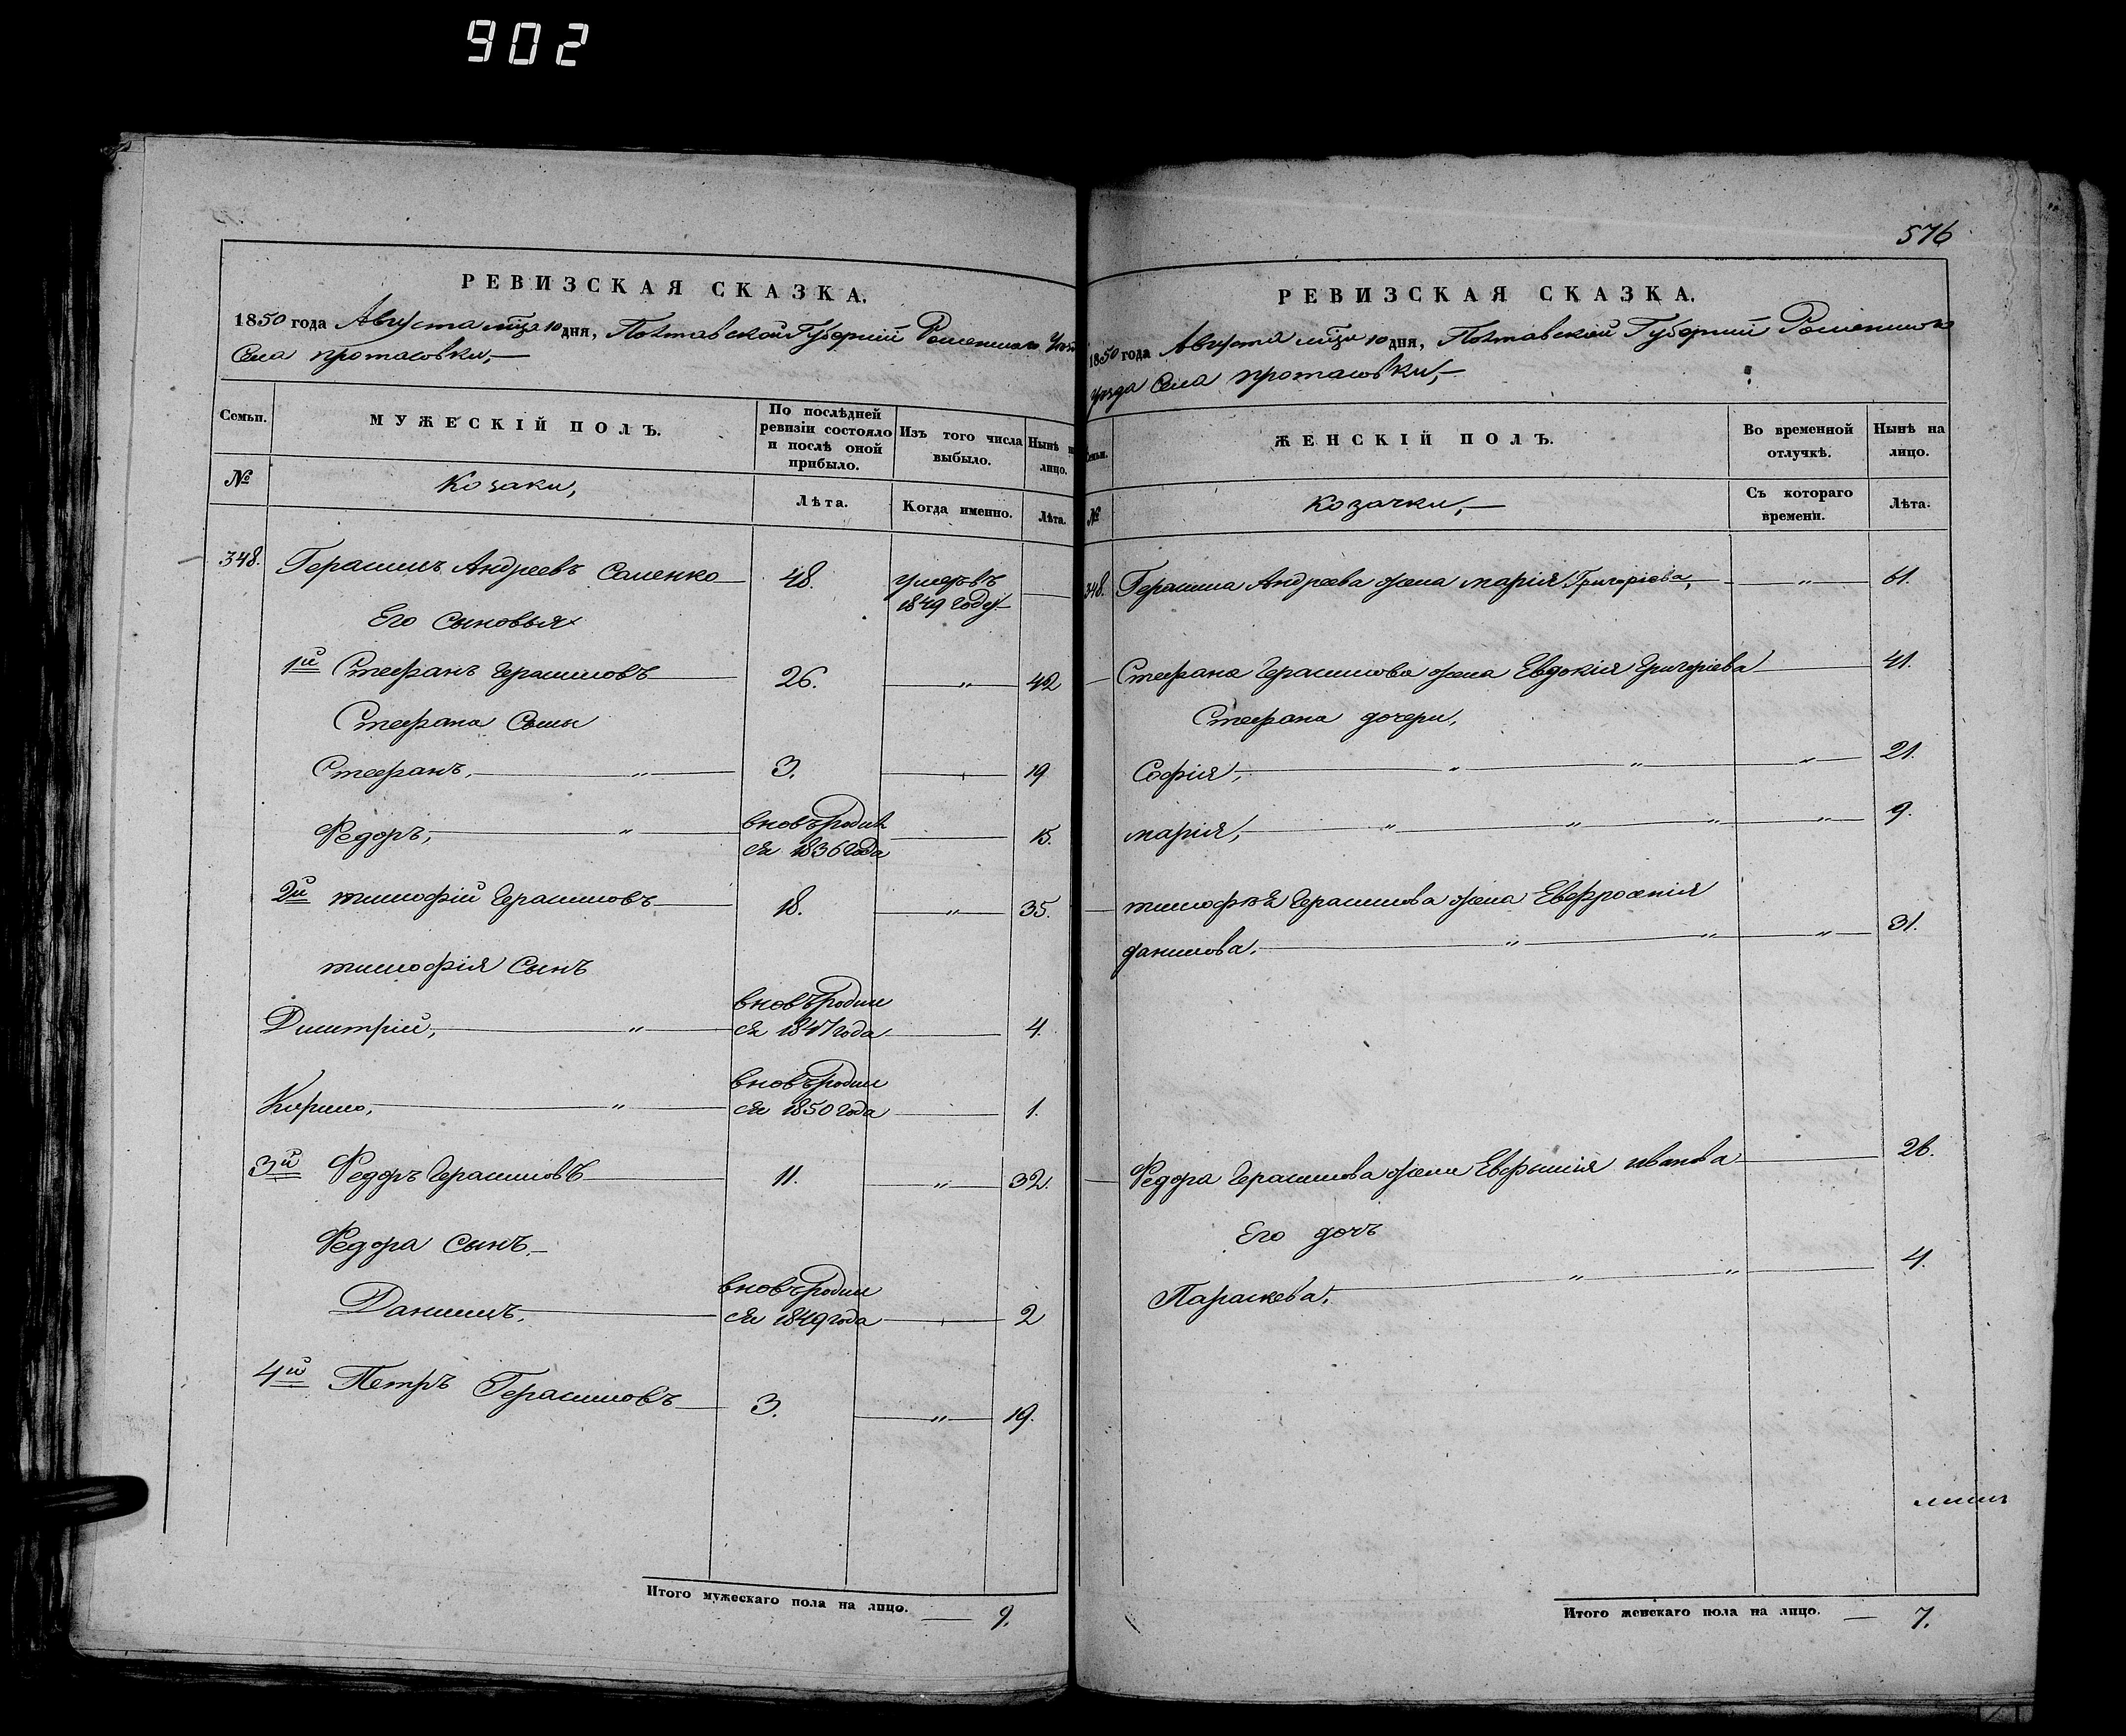 902
РЕВИЗСКАЯ СКАЗКА.
1850 года Августа мца 10 дня, Полтавской Губерніи Роменского
Села протасовки,
Семьи.
МУЖЕСКІЙ ПОЛЪ.
По послѣдней ревизіи состояло и послѣ оной прибыло.
Изъ того числа выбыло.
Нынѣ
лицо.
№
Козаки,
Лѣта.
Когда именно.
Лѣта.
348. Герасимъ Андреевъ Саленко 48. умеръ въ
1849 году
Его Сыновья
1й Стефанъ Герасимовъ 26. „ 42
Стефана Сыны
Стефанъ, „ 3. 19
Федоръ, „ вновь родил
ся 1836 года 15.
2й тимофій Герасимовъ 18. „ 35.
тимофія Сынъ
Димитрій, „ вновь родил
ся 1847 года 4.
Кирило, „ вновь родил
ся 1850 года 1.
3й Федоръ Герасимовъ 11. „ 32.
Федора Сынъ
Даниилъ, вновь родил
ся 1849 года 2
4й Петръ Герасимовъ 3. „ 19.
Итого мужескаго пола на лицо. 9.
576
РЕВИЗСКАЯ СКАЗКА.
1850 года Августа мца 10 дня, Полтавской Губерніи Роменского
уезда Села протасовки,
ЖЕНСКІЙ ПОЛЪ.
Во временной отлучкѣ.
Нынѣ на лицо.
№
Козачки,
Съ котораго времени.
Лѣта.
348. Герасима Андреева жена марія Григоріева, „ 61.
Стефана Герасимова жена Евдокія Григоріева 41.
Стефана дочери,
Софія, „ „ „ 21.
марія, „ „ „ „ 9.
тимофѣя Герасимова жена Евфросенія
данилова. „ „ „ 31.
Федора Герасимова жена Евфимія иванова 26.
Его дочь
Параскева, „ „ 4.
Итого женскаго пола на лицо. 7.